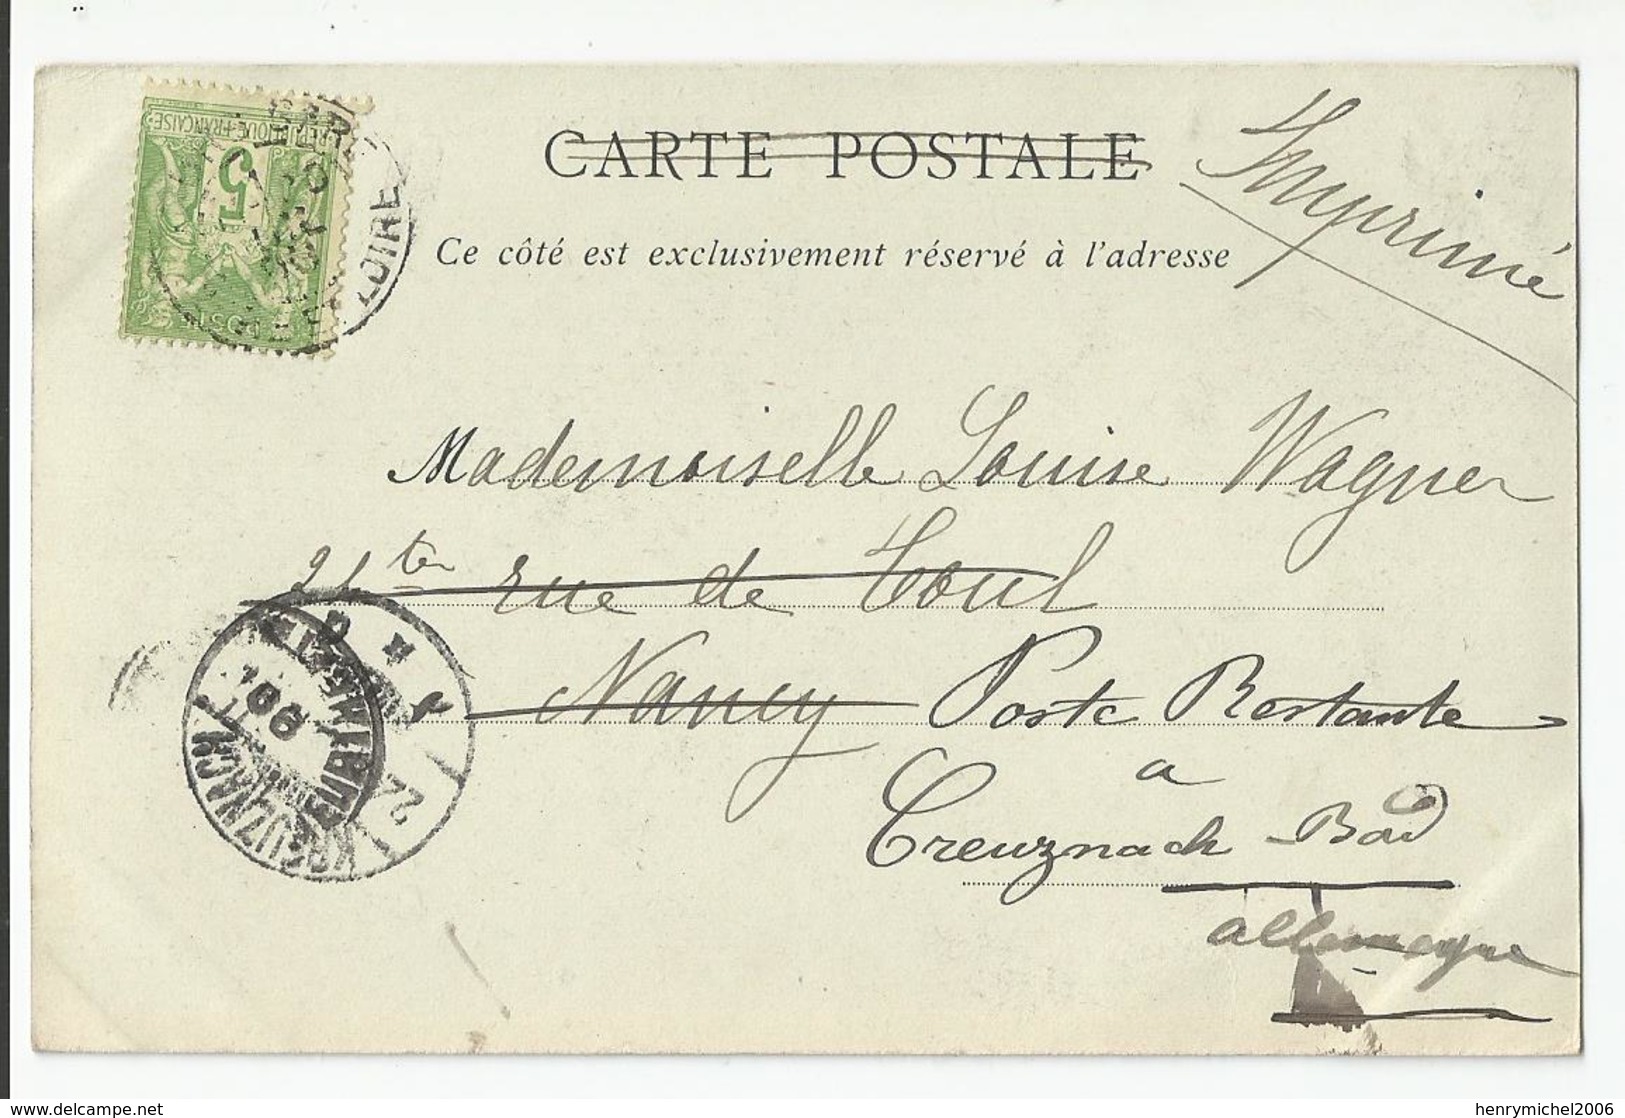 CARTE POSTALE
Imprimé
Ce côté est exclusivement réservé à l'adresse
REPUBLIQUE FRANÇAISE
5
GARE
LOIRE
Mademoiselle Louise Wagner
21 ter rue de Toul
Nancy Poste Restante
a
Creuznach-Bad
allemagne
KREUZNACH
henrymichel2006
www.delcampe.net